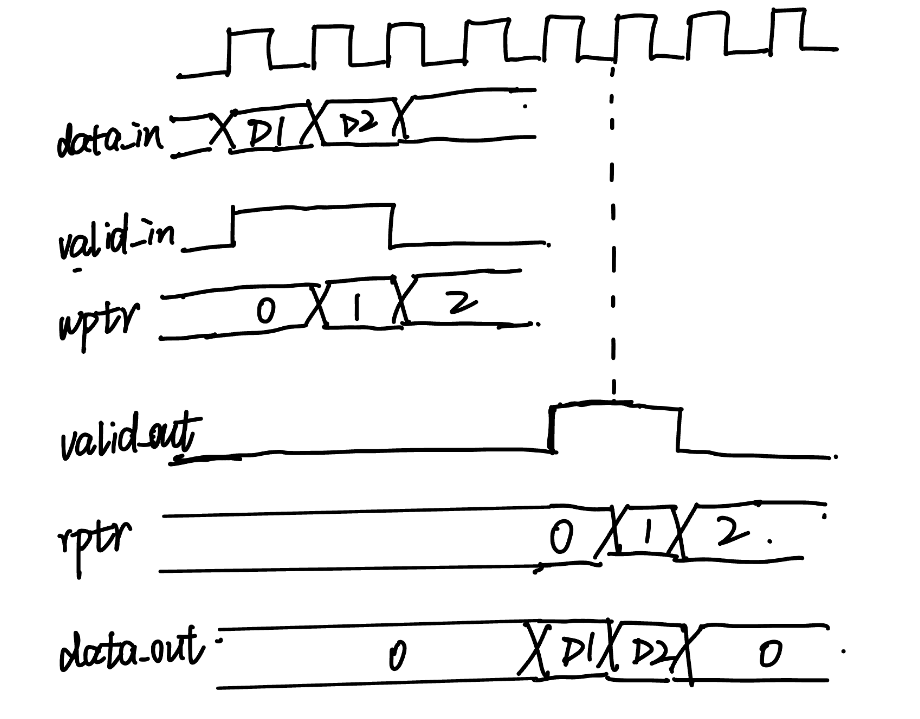 data_in D1 D2
valid_in
wptr 0 1 2
valid_out
rptr 0 1 2
data_out 0 D1 D2 0